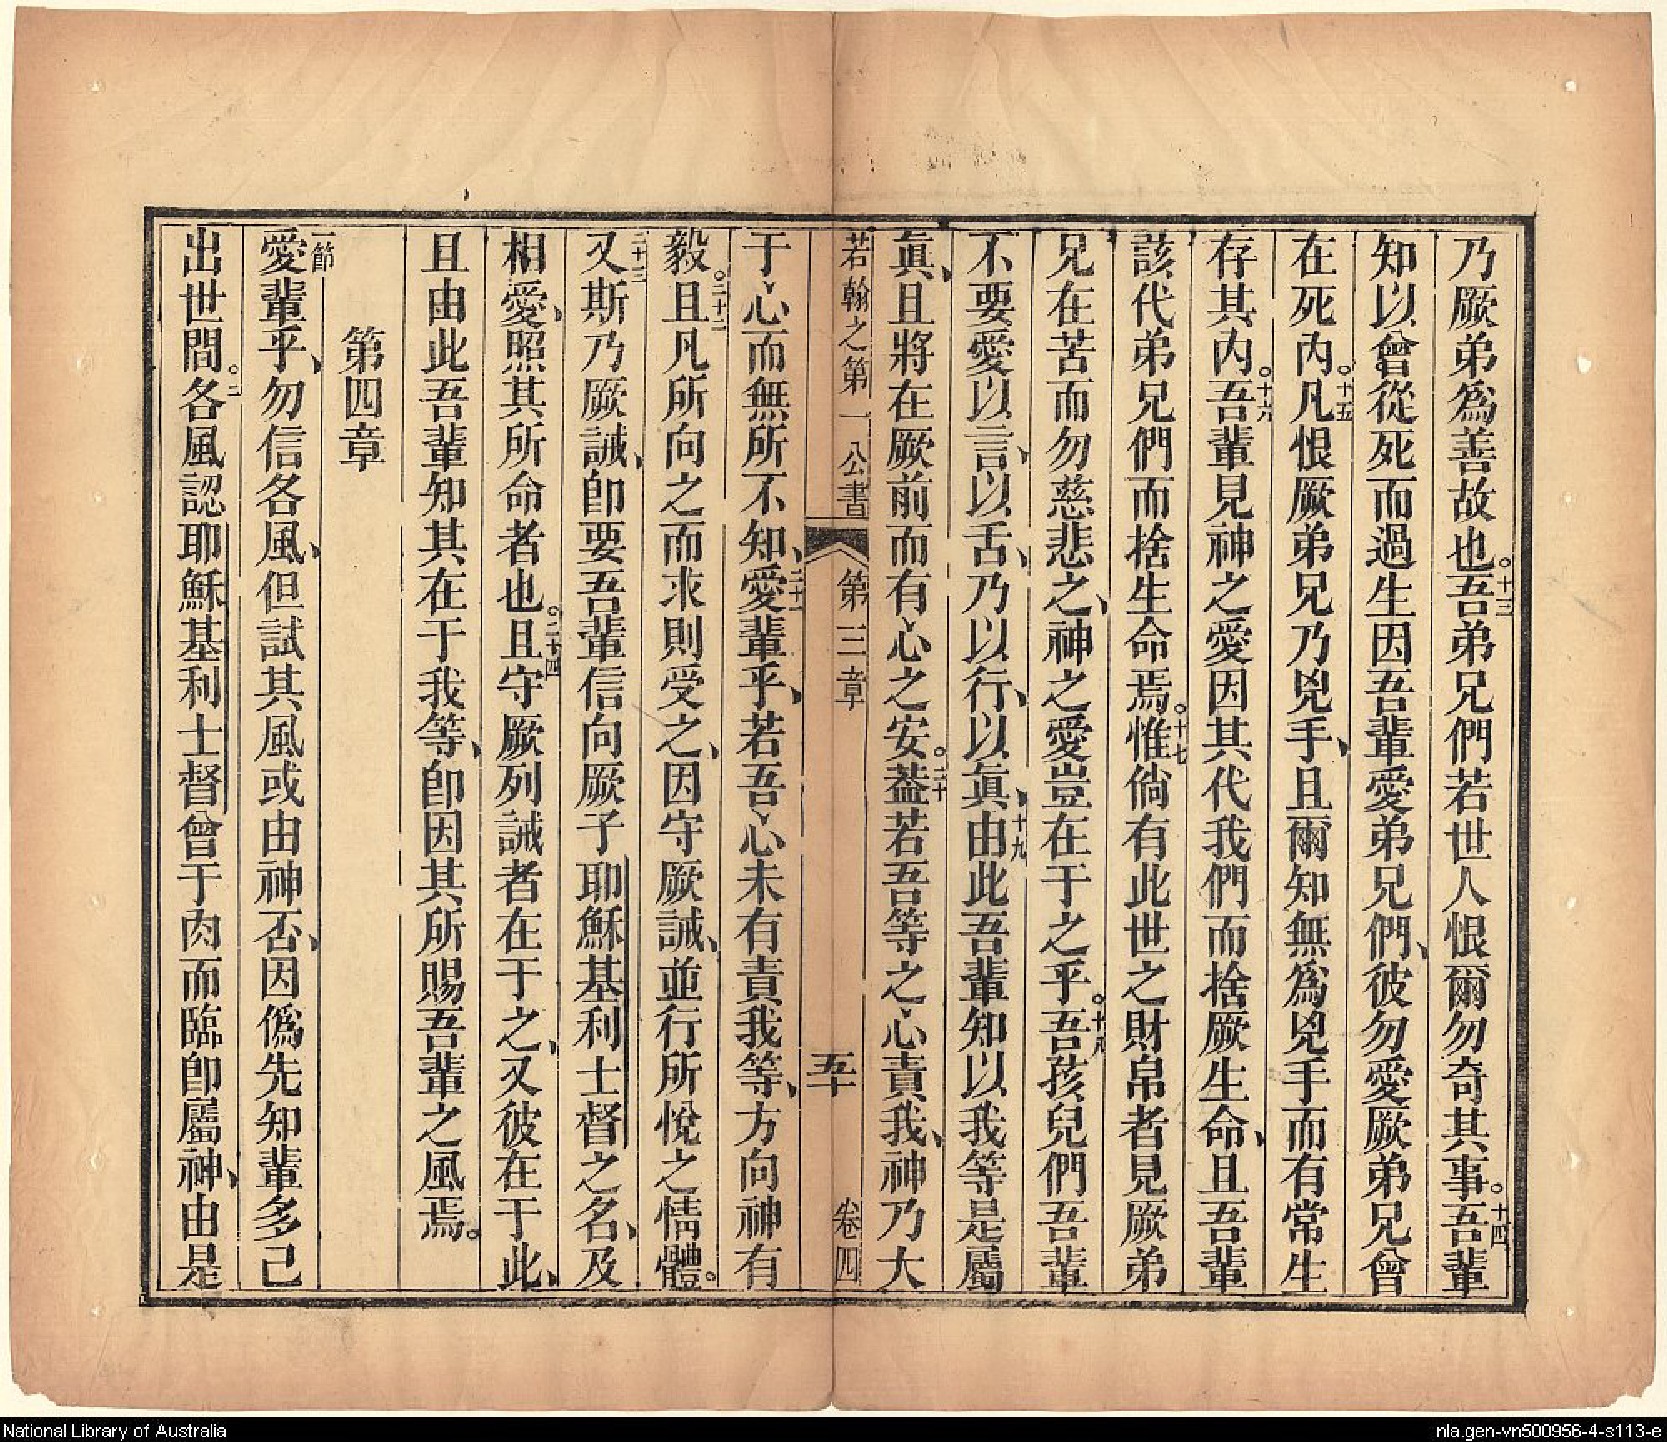 乃厥弟爲善故也。十三吾弟兄們若世人恨爾勿奇其事。十四吾輩
知以曾從死而過生因吾輩愛弟兄們、彼勿愛厥弟兄曾
在死內。十五凡恨厥弟兄乃兇手、且爾知無爲兇手而有常生
存其內。十六吾輩見神之愛因其代我們而捨厥生命、且吾輩
該代弟兄們而捨生命焉。十七惟倘有此世之財帛者見厥弟
兄在苦而勿慈悲之、神之愛豈在于之乎。十八吾孩兒們吾輩
不要愛以言、以舌、乃以行、以眞、十九由此吾輩知以我等是屬
眞、且將在厥前而有心之安。二十蓋若吾等之心責我、神乃大
若翰之第一公書 第三章 五十 卷四
于心而無所不知、二十一愛輩乎、若吾心未有責我等、方向神有
毅。二十二且凡所向之而求則受之、因守厥誡、並行所悅之情體。
二十三又斯乃厥誡、卽要吾輩信向厥子耶穌基利士督之名、及
相愛、照其所命者也。二十四且守厥列誡者在于之、又彼在于此、
且由此吾輩知其在于我等、卽因其所賜吾輩之風焉。
第四章
一節愛輩乎、勿信各風、但試其風或由神否、因僞先知輩多已
出世間。二各風認耶穌基利士督曾于肉而臨卽屬神、由是
National Library of Australia
nla.gen-vn500956-4-s113-e